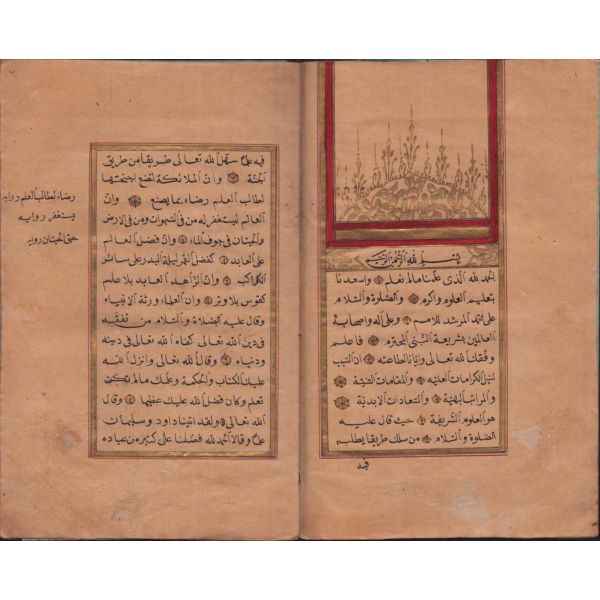 بسم الله الرحمن الرحيم
الحمد لله الذى علمنا ما لم نعلم واسعدنا
بتعليم العلوم وأكرم والصلوة والسلام
على محمد المرشد للامم وعلى آله واصحابه
العالمين بشريعة النبى المحترم فاعلم
وفقك الله تعالى وإيانا لطاعته ان السبب
لنيل الكرامات العلية والمقامات السنية
والمراتب البهية والسعادات الابدية
هو العلوم الشريفة حيث قال عليه
الصلوة والسلام من سلك طريقا يطلب
فيه
فيه علما سهل الله تعالى طريقا من طريق
الجنة وان الملائكة لتضع اجنحتها
لطالب العلم رضاء بما يصنع وان
العالم ليستغفر له من فى السموات ومن فى الارض
والحيتان فى جوف الماء وان فضل العالم
على العابد كفضل القمر ليلة البدر على سائر
الكواكب وان الزاهد العابد بلا علم
كقوس بلا وتر وان العلماء ورثة الانبياء
وقال عليه الصلاة والسلام من تفقه
فى دين الله تعالى كفاه الله تعالى فى دينه
ودنياه وقال الله تعالى وانزل الله
عليك الكتاب والحكمة وعلمك ما لم تكن
تعلم وكان فضل الله عليك عظيما وقال
الله تعالى ولقد اتينا داود وسليمان
علما وقالا الحمد لله فضلنا على كثير من عباده
رضاء لطالب العلم روايه
يستغفر روايه
حتى الحيتان روايه